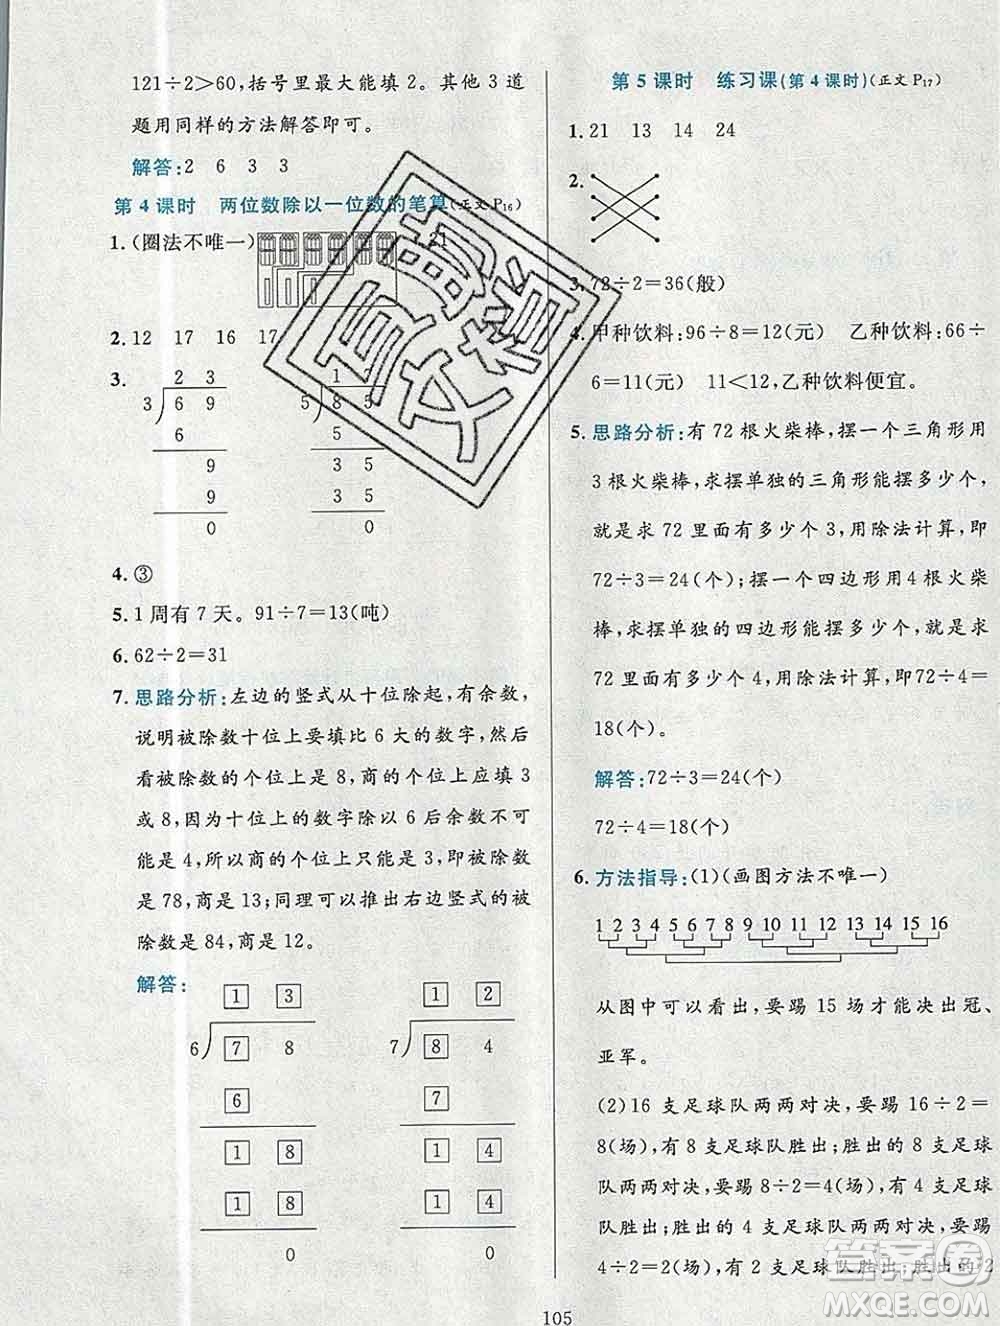 121÷2>60,括号里最大能填2。其他3道
题用同样的方法解答即可。
解答:2 6 3 3
第4课时 两位数除以一位数的笔算(正文P₁₆)
1.(圈法不唯一) 21
2.12 17 16 17
3.
2 3
3 6 9
6
9
9
0
1
5 8 5
5
3 5
3 5
0
4.③
5.1周有7天。91÷7=13(吨)
6.62÷2=31
7.思路分析:左边的竖式从十位除起,有余数,
说明被除数十位上要填比6大的数字,然后
看被除数的个位上是8,商的个位上应填3
或8,因为十位上的数字除以6后余数不可
能是4,所以商的个位上只能是3,即被除数
是78,商是13;同理可以推出右边竖式的被
除数是84,商是12。
解答:
1 3
6 7 8
6
1 8
1 8
0
1 2
7 8 4
7
1 4
1 4
0
第5课时 练习课(第4课时)(正文P₁₇)
1.21 13 14 24
2.
3.72÷2=36(般)
4.甲种饮料:96÷8=12(元) 乙种饮料:66÷
6=11(元) 11<12,乙种饮料便宜。
5.思路分析:有72根火柴棒,摆一个三角形用
3根火柴棒,求摆单独的三角形能摆多少个,
就是求72里面有多少个3,用除法计算,即
72÷3=24(个);摆一个四边形用4根火柴
棒,求摆单独的四边形能摆多少个,就是求
72里面有多少个4,用除法计算,即72÷4=
18(个)。
解答:72÷3=24(个)
72÷4=18(个)
6.方法指导:(1)(画图方法不唯一)
1 2 3 4 5 6 7 8 9 10 11 12 13 14 15 16
从图中可以看出,要踢15场才能决出冠、
亚军。
(2)16支足球队两两对决,要踢16÷2=
8(场),有8支足球队胜出;胜出的8支足球
队两两对决,要踢8÷2=4(场),有4支足球
队胜出;胜出的4支足球队两两对决,要踢
4÷2=2(场),有2支足球队胜出;胜出的2
105
答案圈
MXQE.COM